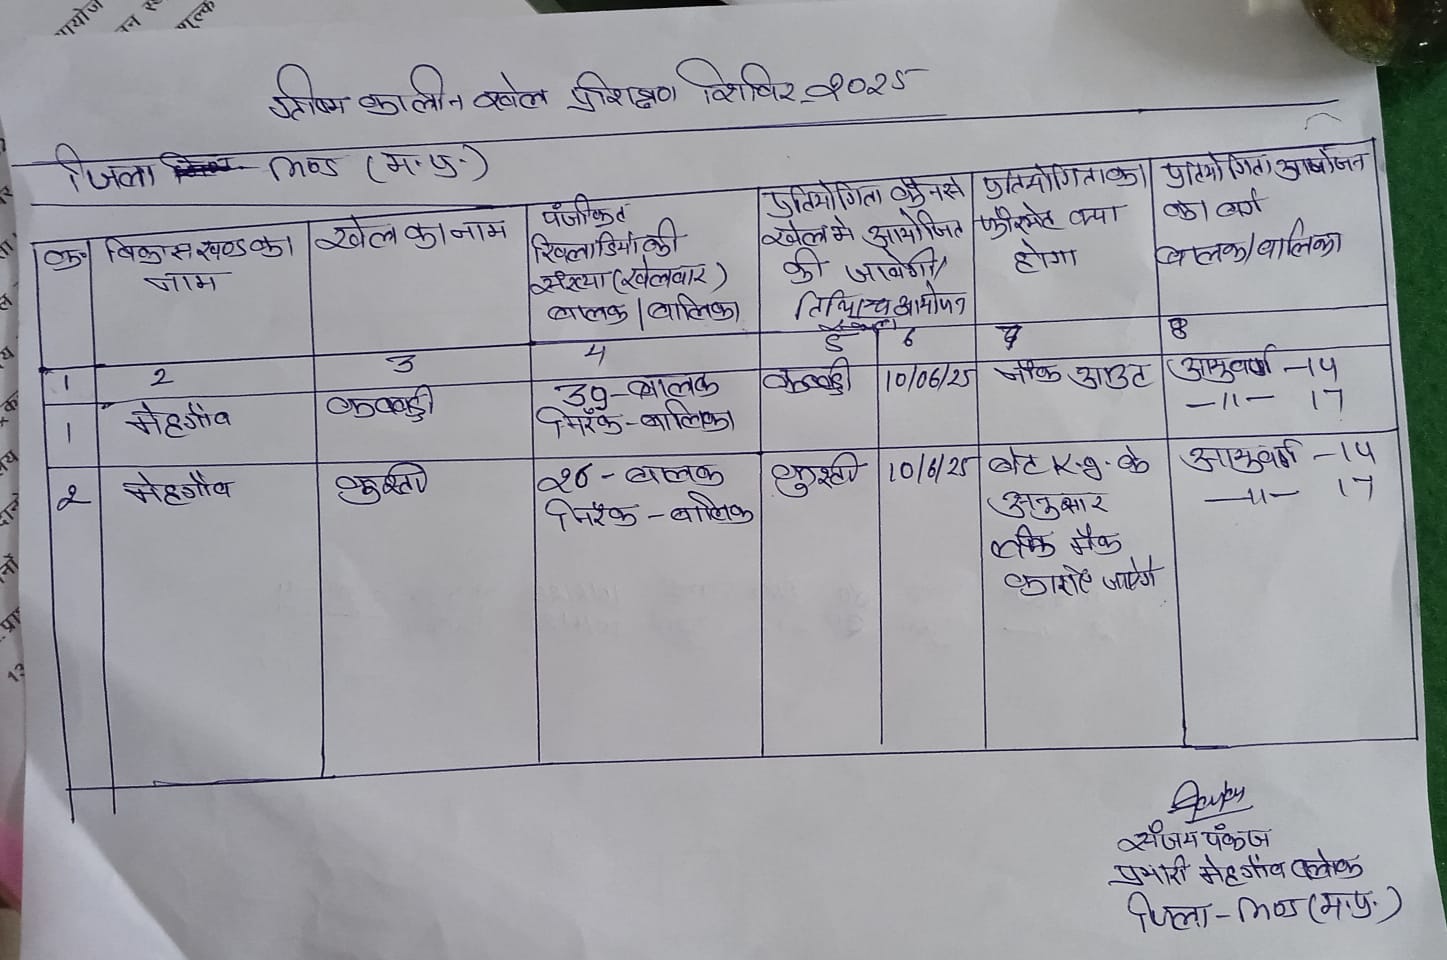 ग्रीष्म कालीन खेल प्रशिक्षण शिविर-२०२५
जिला भिण्ड (म.प्र.)
क्र. विकासखण्ड का नाम
खेल का नाम
पंजीकृत
खिलाडियो की
संख्या (खेलवार)
बालक / बालिका
प्रतियोगिता कौनसे
खेल मे आयोजित
की जावेगी/
तिथि एवं आयोजन
प्रतियोगिता का
फॉरमेट क्या
होगा
प्रतियोगिता आयोजन
का वर्ग
बालक/बालिका
1 2 3 4 5 6 7 8
1 मेहगाँव कबड्डी 39-बालक कबड्डी 10/06/25 नॉक आउट आयुवर्ग -14
निरंक-बालिका -11- 17
२ मेहगाँव कुश्ती २6 - बालक कुश्ती 10/6/25 वेट K.g. के आयुवर्ग -14
निरंक - बालिक अनुसार -11- 17
मैक
कराये जायेगे
संजय पंकज
प्रभारी मेहगाँव ब्लॉक
जिला - भिण्ड (म.प्र.)